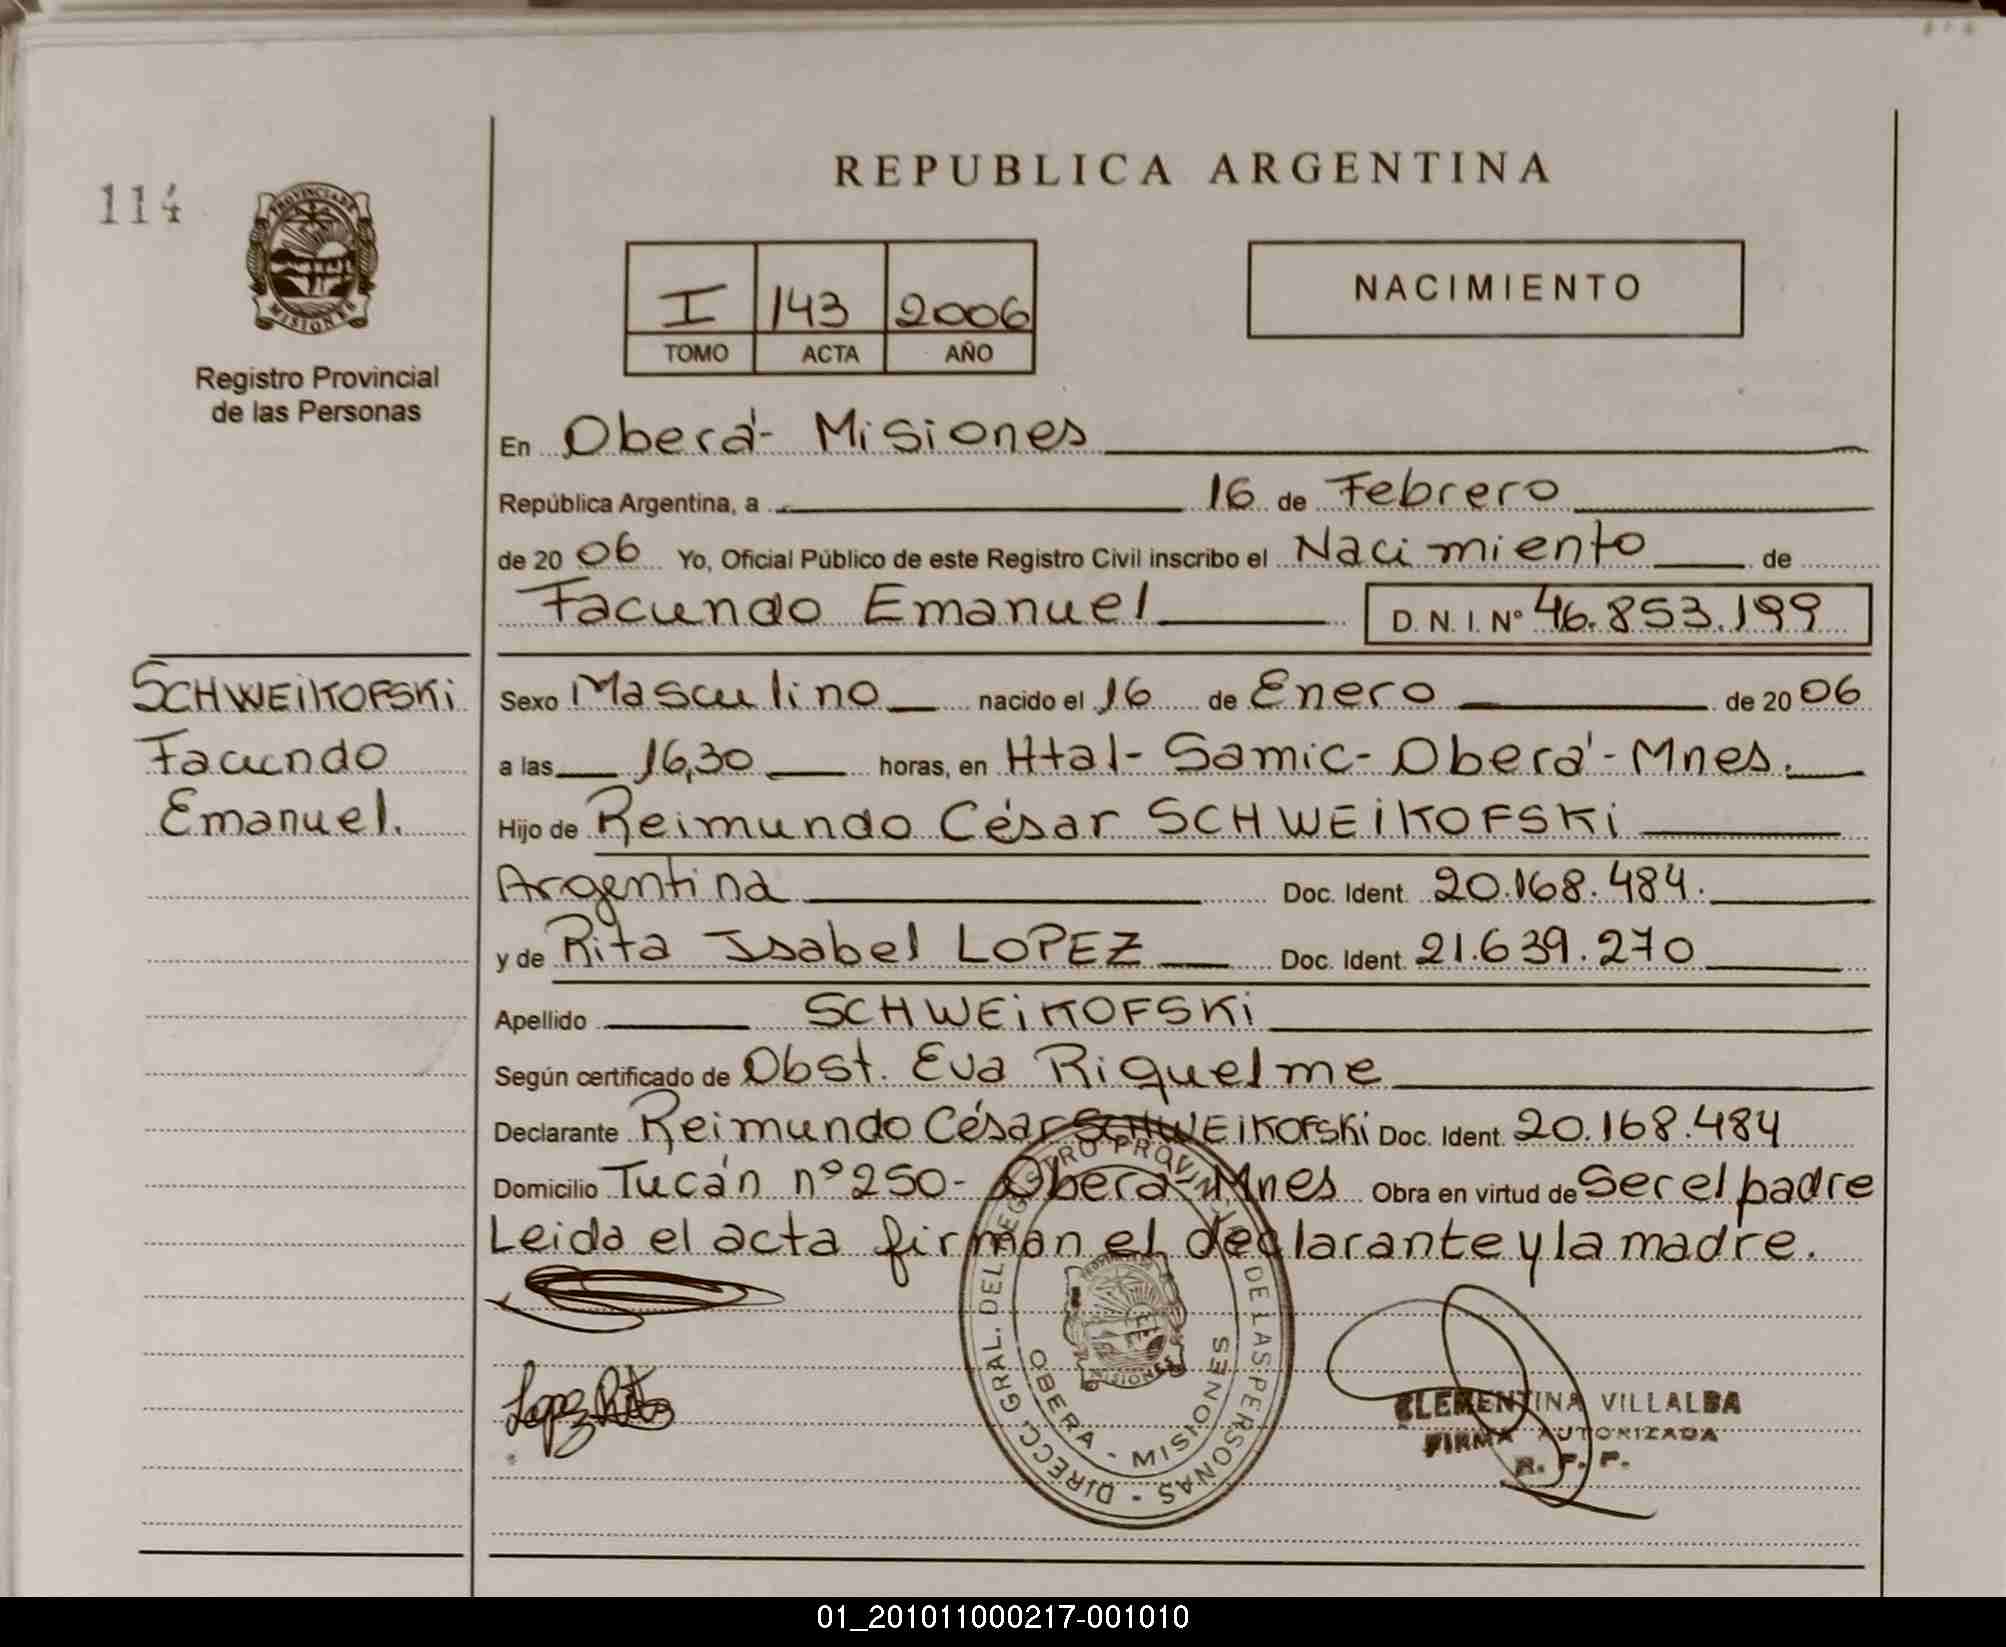 REPUBLICA ARGENTINA
114
PROVINCIA DE
MISIONES
Registro Provincial
de las Personas
I 143 2006
TOMO ACTA AÑO
NACIMIENTO
En Oberá - Misiones
República Argentina, a 16 de Febrero
de 20 06 Yo, Oficial Público de este Registro Civil inscribo el Nacimiento de
Facundo Emanuel D. N. I. Nº 46.853.199
SCHWEIKOFSKi
Facundo
Emanuel.
Sexo Masculino nacido el 16 de Enero de 20 06
a las 16,30 horas, en Htal - Samic - Oberá - Mnes.
Hijo de Reimundo César SCHWEIKOFSKi
Argentina Doc. Ident. 20.168.484.
y de Rita Isabel LOPEZ Doc. Ident. 21.639.270
Apellido SCHWEIKOFSKi
Según certificado de Obst. Eva Riquelme
Declarante Reimundo César SCHWEIKOFSKi Doc. Ident. 20.168.484
Domicilio Tucán nº 250 - Oberá - Mnes Obra en virtud de Ser el padre
Leida el acta firman el declarante y la madre.
Lopez Rita
DIRECC. GRAL. DEL REGISTRO PROVINCIAL DE LAS PERSONAS -
MISIONES
OBERA - MISIONES
CLEMENTINA VILLALBA
FIRMA AUTORIZADA
R. P. P.
01_201011000217-001010